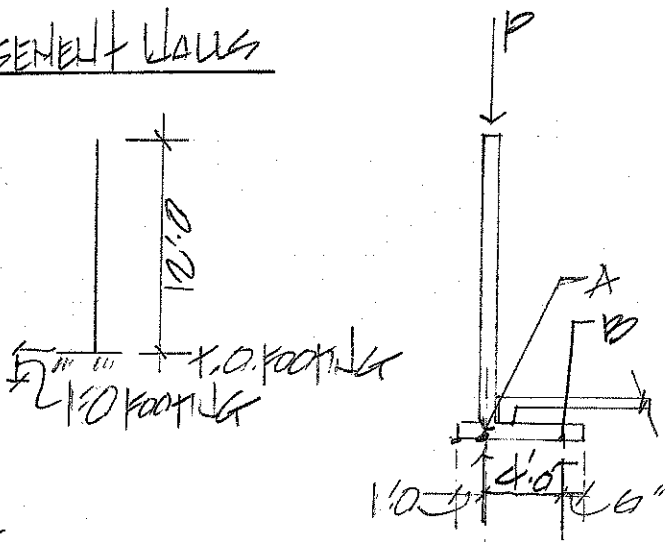 SEMENT WALLS
P
12'.0
A
B
T.O. FOOTING
1'-0 FOOTING
1'.0
4'.0
6"